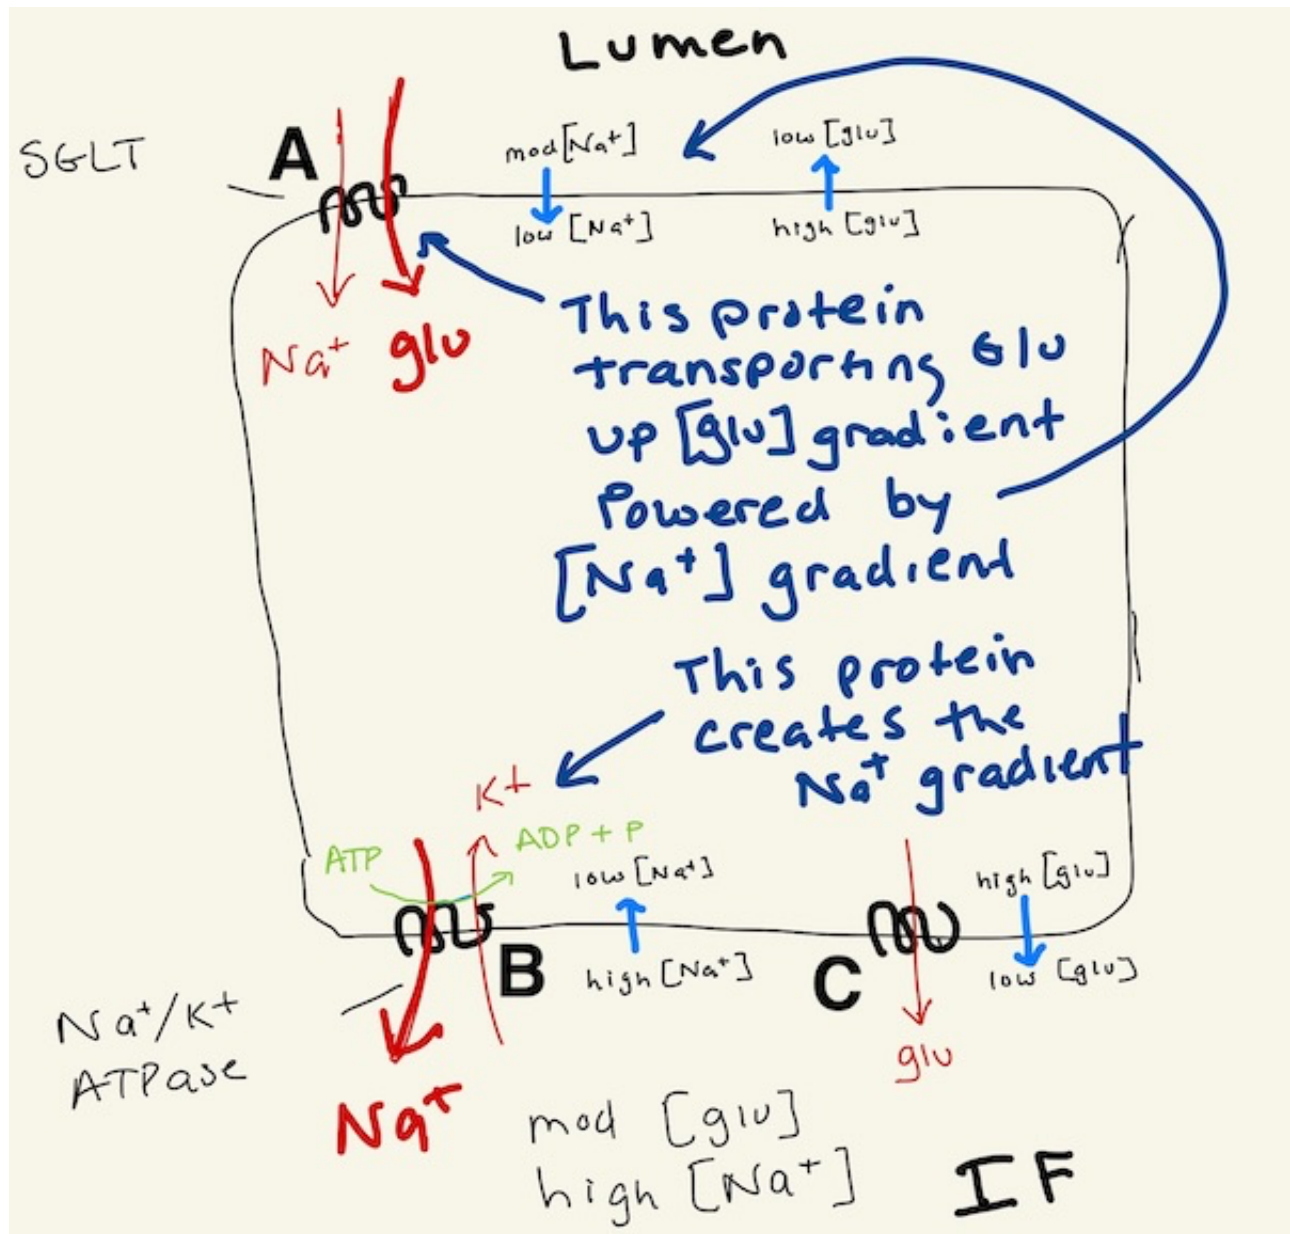 Lumen
SGLT
A
mod [Na+]
low [Na+]
low [glu]
high [glu]
Na+ glu
This protein
transporting Glu
up [glu] gradient
Powered by
[Na+] gradient
This protein
creates the
Na+ gradient
K+
ATP
ADP + P
low [Na+]
high [Na+]
B
high [glu]
low [glu]
C
glu
Na+/K+
ATPase
Na+
mod [glu]
high [Na+]
IF